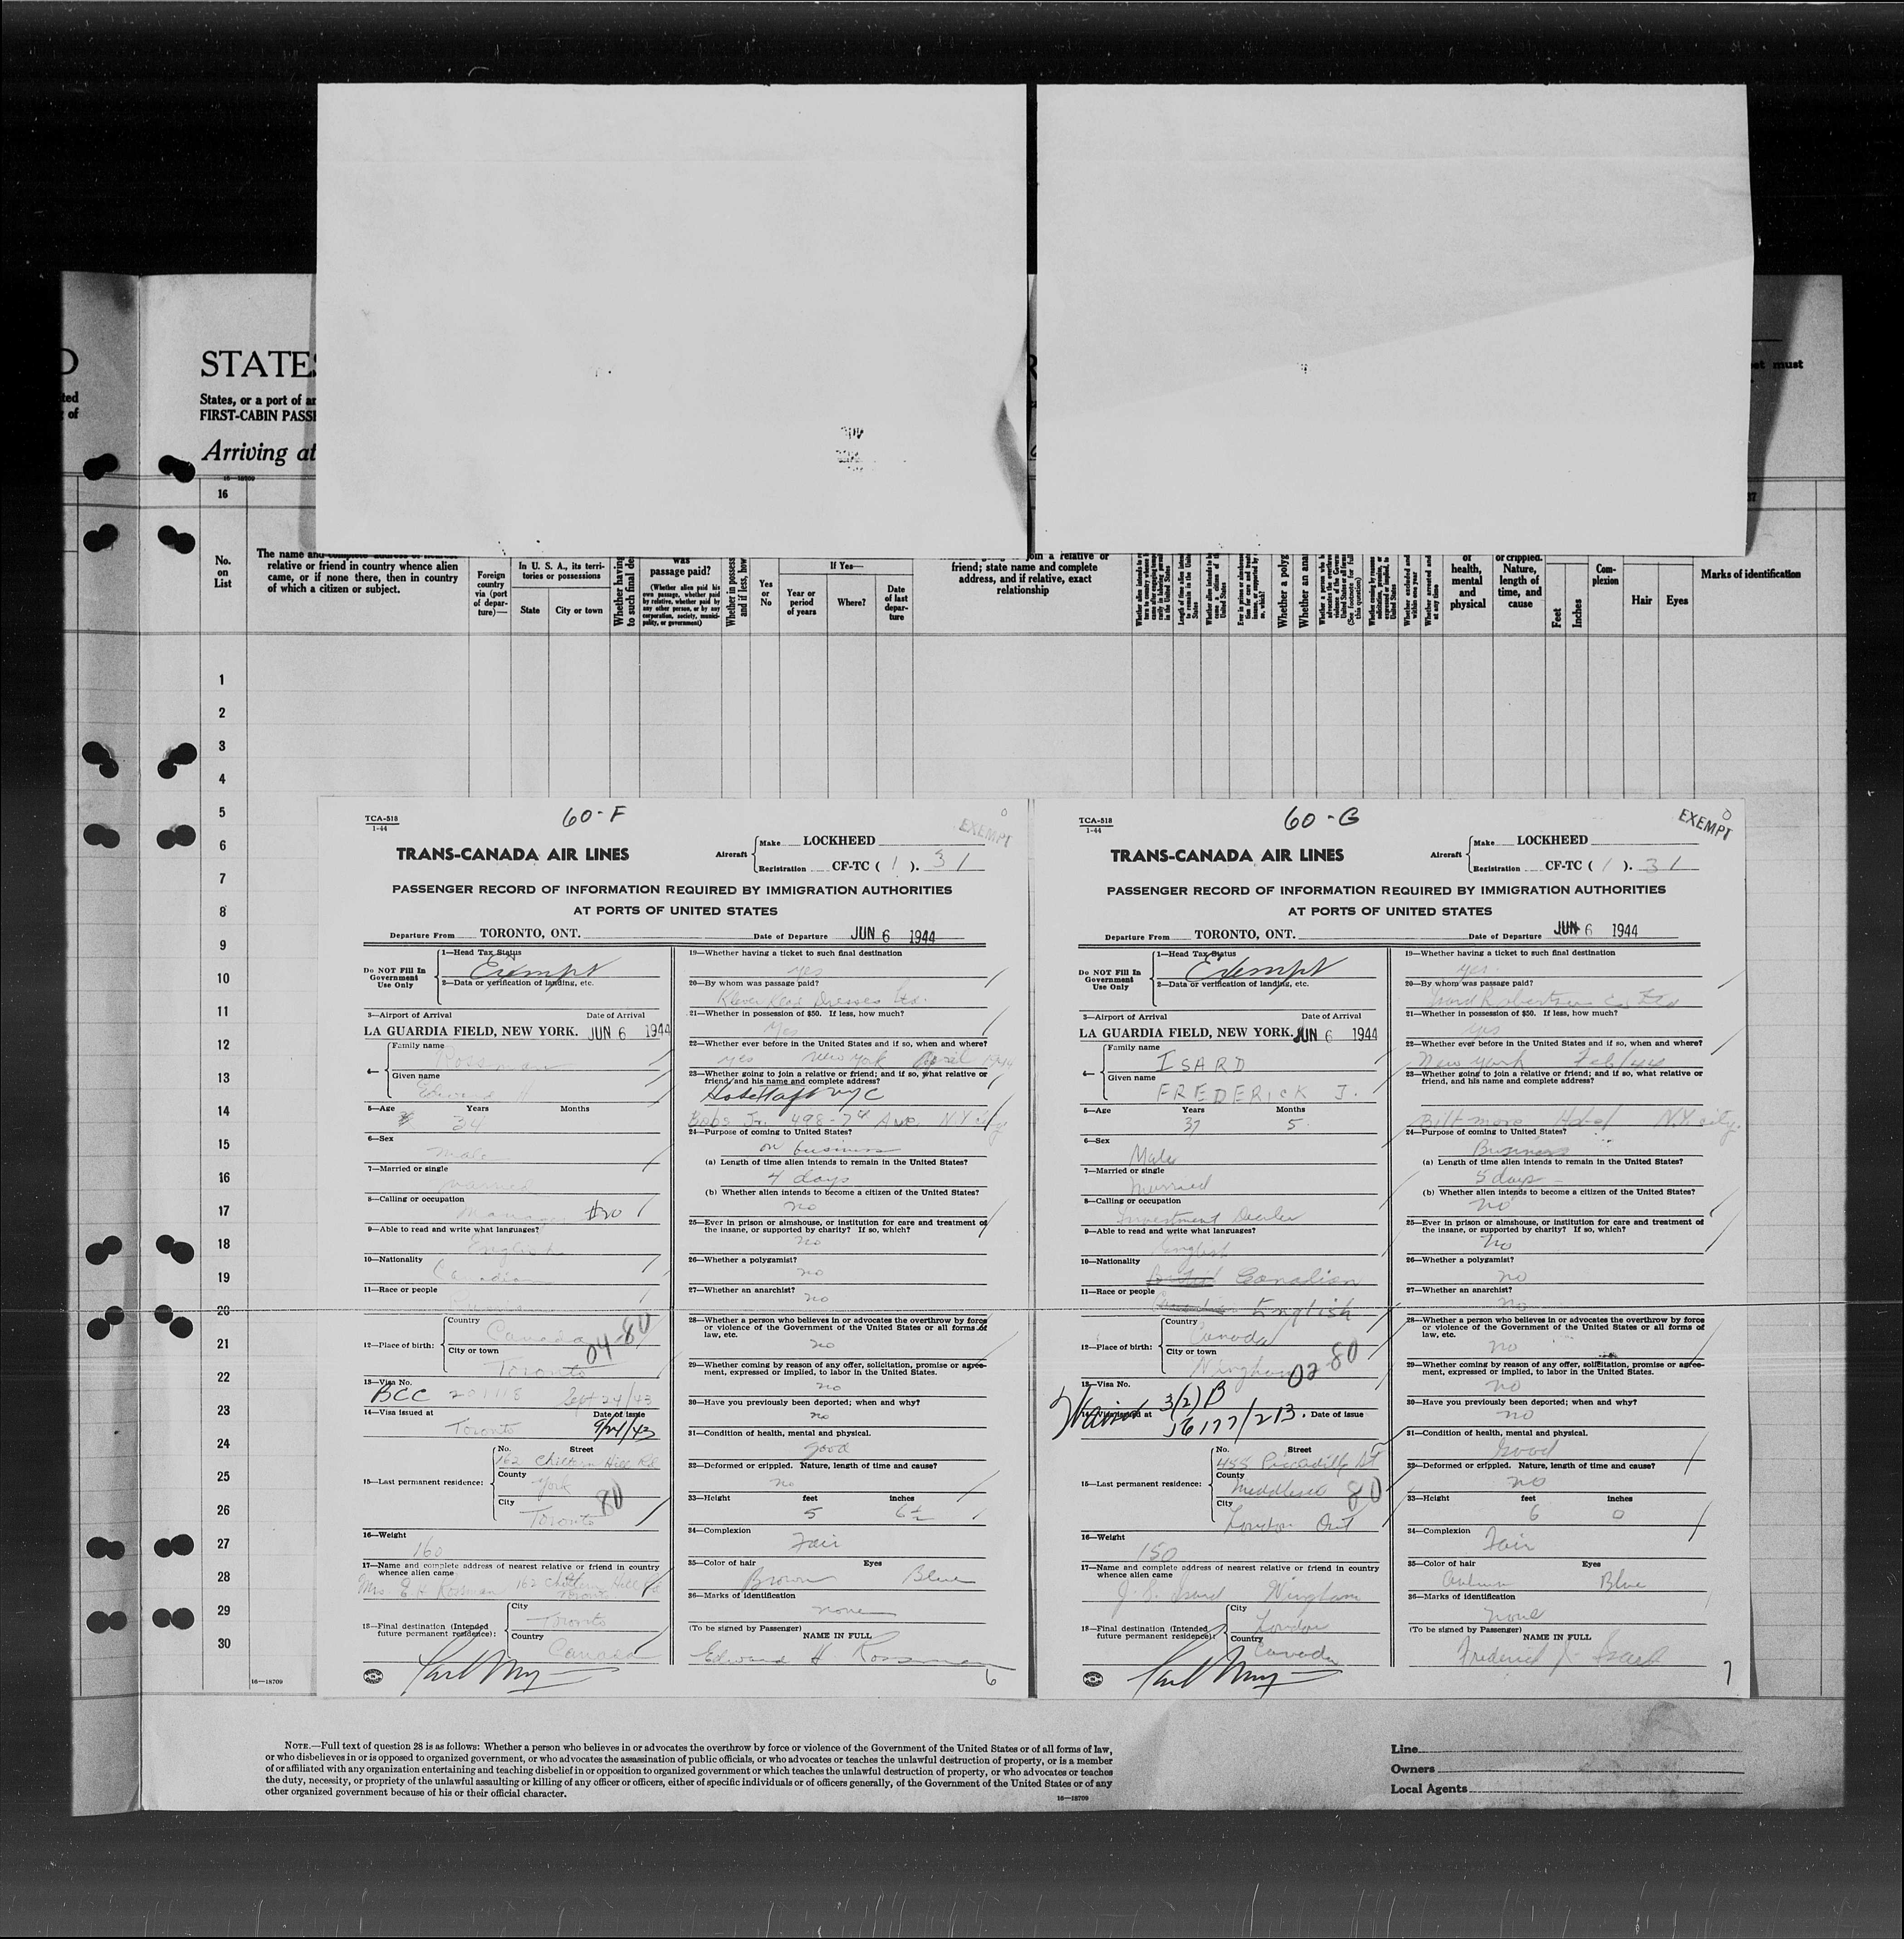 STATES
States, or a port of
FIRST-CABIN
Arriving at
must
16—18709
16
No.
on
List
The name and complete address of nearest
relative or friend in country whence alien
came, or if none there, then in country
of which a citizen or subject.
Foreign
country
via (port
of depar-
ture)—
In U. S. A., its terri-
tories or possessions
State
City or town
Whether having
to such final
was
passage paid?
(Whether alien paid his
own passage, whether paid
by relative, whether paid by
any other person, or by any
corporation, society, munici-
pality, or government)
Whether in
and if less, how
Yes
or
No
If Yes—
Year or
period
of years
Where?
Date
of last
depar-
ture
join a relative or
friend; state name and complete
address, and if relative, exact
relationship
of
health,
mental
and
physical
or crippled.
Nature,
length of
time, and
cause
Feet
Inches
Com-
plexion
Hair
Eyes
Marks of identification
1
2
3
4
5
6
7
8
9
10
11
12
13
14
15
16
17
18
19
20
21
22
23
24
25
26
27
28
29
30
16—18709
TCA-518
1-44
60-F
EXEMPT
TRANS-CANADA AIR LINES
Aircraft
Make LOCKHEED
Registration CF-TC ( 1 ). 31
PASSENGER RECORD OF INFORMATION REQUIRED BY IMMIGRATION AUTHORITIES
AT PORTS OF UNITED STATES
Departure From TORONTO, ONT. Date of Departure JUN 6 1944
Do NOT Fill In
Government
Use Only
1—Head Tax Status
Exempt
2—Data or verification of landing, etc.
3—Airport of Arrival Date of Arrival
LA GUARDIA FIELD, NEW YORK. JUN 6 1944
4—
Family name
Rossman
Given name
Edward H
5—Age Years Months
34
6—Sex
male
7—Married or single
married
8—Calling or occupation
Manager $20
9—Able to read and write what languages?
English
10—Nationality
Canadian
11—Race or people
12—Place of birth:
Country
Canada
City or town
Toronto
04-80
13—Visa No.
BCC 201118 Sept 24/43
14—Visa issued at Date of issue
Toronto 9/24/43
15—Last permanent residence:
No. Street
162 Chiltern Hill Rd
County
York
City
Toronto
80
16—Weight
160
17—Name and complete address of nearest relative or friend in country
whence alien came
Mrs. E H Rossman 162 Chiltern Hill Rd
Toronto
18—Final destination (Intended
future permanent residence):
City
Toronto
Country
Canada
19—Whether having a ticket to such final destination
yes
20—By whom was passage paid?
Klever Klad Dresses Ltd.
21—Whether in possession of $50. If less, how much?
Yes
22—Whether ever before in the United States and if so, when and where?
yes New York April 1944
23—Whether going to join a relative or friend; and if so, what relative or
friend, and his name and complete address?
Hotel Taft NYC
Bobs Jr. 498-7th Ave N.Y. City
24—Purpose of coming to United States?
on business
(a) Length of time alien intends to remain in the United States?
4 days
(b) Whether alien intends to become a citizen of the United States?
no
25—Ever in prison or almshouse, or institution for care and treatment of
the insane, or supported by charity? If so, which?
no
26—Whether a polygamist?
no
27—Whether an anarchist?
no
28—Whether a person who believes in or advocates the overthrow by force
or violence of the Government of the United States or all forms of
law, etc.
no
29—Whether coming by reason of any offer, solicitation, promise or agree-
ment, expressed or implied, to labor in the United States.
no
30—Have you previously been deported; when and why?
no
31—Condition of health, mental and physical.
good
32—Deformed or crippled. Nature, length of time and cause?
no
33—Height feet inches
5 6½
34—Complexion
Fair
35—Color of hair Eyes
Brown Blue
36—Marks of identification
none
(To be signed by Passenger)
NAME IN FULL
Edward H Rossman
6
TCA-518
1-44
60-G
EXEMPT
TRANS-CANADA AIR LINES
Aircraft
Make LOCKHEED
Registration CF-TC ( 1 ). 31
PASSENGER RECORD OF INFORMATION REQUIRED BY IMMIGRATION AUTHORITIES
AT PORTS OF UNITED STATES
Departure From TORONTO, ONT. Date of Departure JUN 6 1944
Do NOT Fill In
Government
Use Only
1—Head Tax Status
Exempt
2—Data or verification of landing, etc.
3—Airport of Arrival Date of Arrival
LA GUARDIA FIELD, NEW YORK. JUN 6 1944
4—
Family name
ISARD
Given name
FREDERICK J.
5—Age Years Months
37 5
6—Sex
Male
7—Married or single
Married
8—Calling or occupation
Investment Dealer
9—Able to read and write what languages?
English
10—Nationality
Canadian
11—Race or people
English
12—Place of birth:
Country
Canada
City or town
Wingham
02-80
13—Visa No.
3(2)B
14—Visa issued at Date of issue
Waived 56177/213.
15—Last permanent residence:
No. Street
455 Piccadilly St
County
Middlesex
80
City
London Ont
16—Weight
150
17—Name and complete address of nearest relative or friend in country
whence alien came
Isard Wingham
18—Final destination (Intended
future permanent residence):
City
London
Country
Canada
19—Whether having a ticket to such final destination
yes
20—By whom was passage paid?
Isard Robertson Co Ltd
21—Whether in possession of $50. If less, how much?
yes
22—Whether ever before in the United States and if so, when and where?
New York Feb/44
23—Whether going to join a relative or friend; and if so, what relative or
friend, and his name and complete address?
Biltmore Hotel N.Y. city.
24—Purpose of coming to United States?
Business
(a) Length of time alien intends to remain in the United States?
5 days
(b) Whether alien intends to become a citizen of the United States?
no
25—Ever in prison or almshouse, or institution for care and treatment of
the insane, or supported by charity? If so, which?
no
26—Whether a polygamist?
no
27—Whether an anarchist?
no
28—Whether a person who believes in or advocates the overthrow by force
or violence of the Government of the United States or all forms of
law, etc.
no
29—Whether coming by reason of any offer, solicitation, promise or agree-
ment, expressed or implied, to labor in the United States.
no
30—Have you previously been deported; when and why?
no
31—Condition of health, mental and physical.
Good
32—Deformed or crippled. Nature, length of time and cause?
no
33—Height feet inches
6 0
34—Complexion
Fair
35—Color of hair Eyes
Auburn Blue
36—Marks of identification
none
(To be signed by Passenger)
NAME IN FULL
Frederick J. Isard
7
NOTE.—Full text of question 28 is as follows: Whether a person who believes in or advocates the overthrow by force or violence of the Government of the United States or of all forms of law,
or who disbelieves in or is opposed to organized government, or who advocates the assassination of public officials, or who advocates or teaches the unlawful destruction of property, or is a member
of or affiliated with any organization entertaining and teaching disbelief in or opposition to organized government or which teaches the unlawful destruction of property, or who advocates or teaches
the duty, necessity, or propriety of the unlawful assaulting or killing of any officer or officers, either of specific individuals or of officers generally, of the Government of the United States or of any
other organized government because of his or their official character.
16—18709
Line
Owners
Local Agents